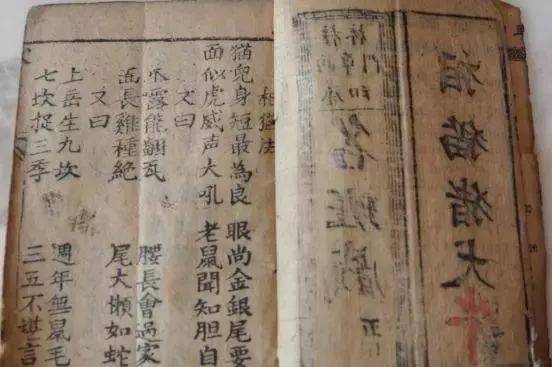 相猫猪犬牛
相猫法
猫兒身短最為良 眼尚金銀尾要
面似虎威声大吼 老鼠聞知胆自
又曰
爪露能翻瓦 腰長會過家
面長雞種絕 尾大懶如蛇
又曰
上岳生九坎 週年無鼠毛
七坎捉三季 三五不堪言